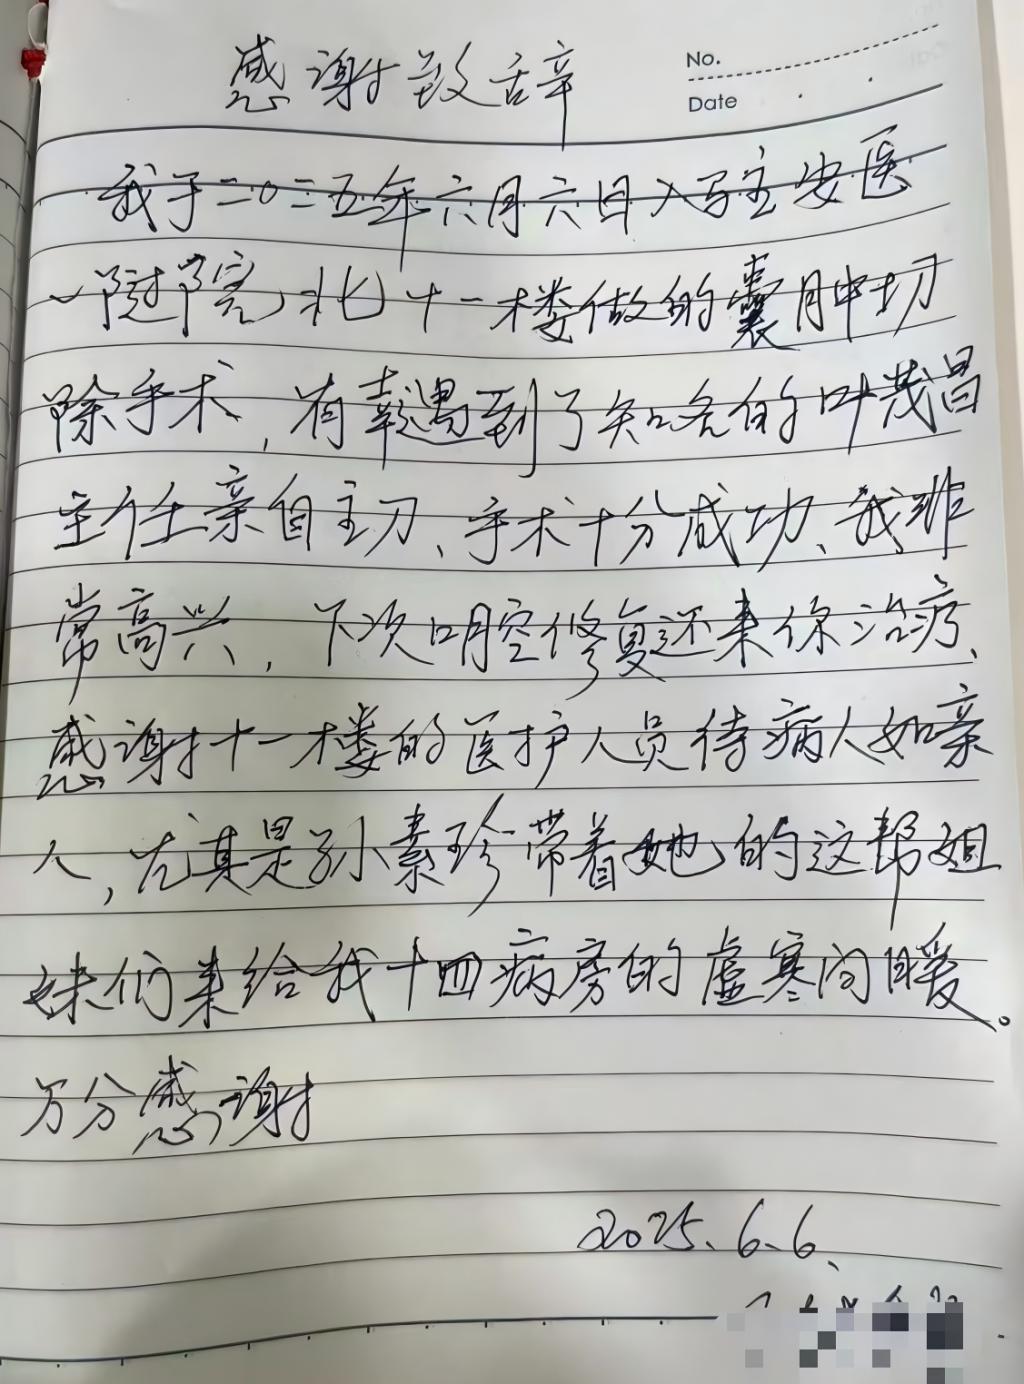 感谢致辞
No.
Date
我于二〇二五年六月六日入驻安医
一附院北十一楼做的囊肿切
除手术,有幸遇到了知名的叶茂昌
主任亲自主刀、手术十分成功、我非
常高兴,下次口腔修复还来你治疗、
感谢十一楼的医护人员待病人如亲
人,尤其是孙素珍带着她的这帮姐
妹们来给我十四病房的虚寒问暖。
万分感谢
2025.6.6、